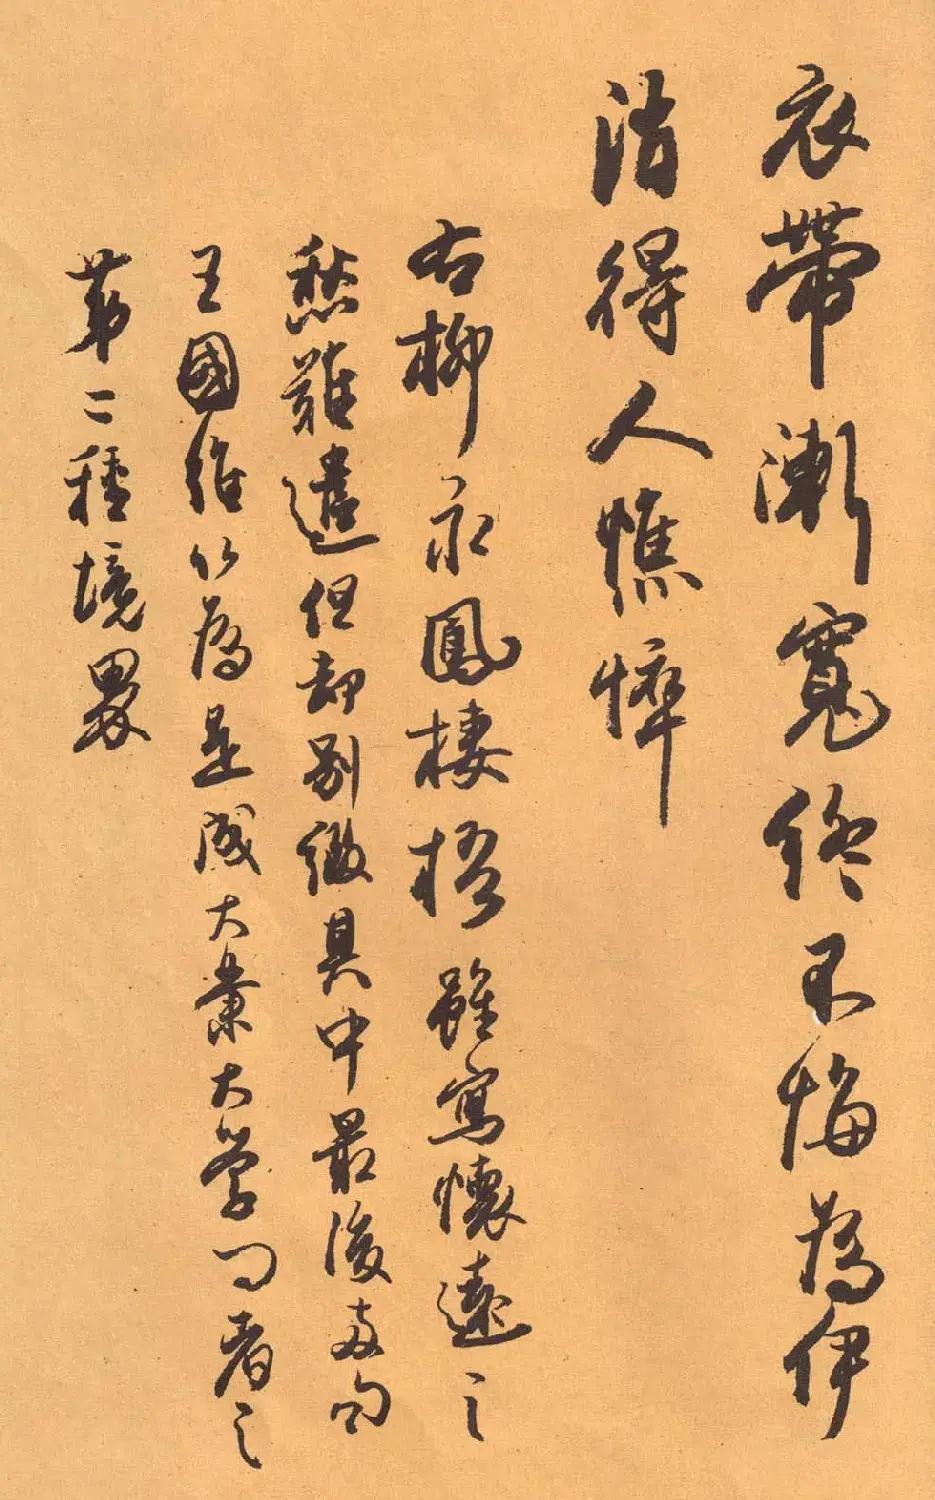 衣帶漸寬終不悔為伊
消得人憔悴
右柳永鳳棲梧雖寫懷遠之
愁難遣但却別緻其中最後兩句
王國維以為是成大業大學問者之
第二種境界